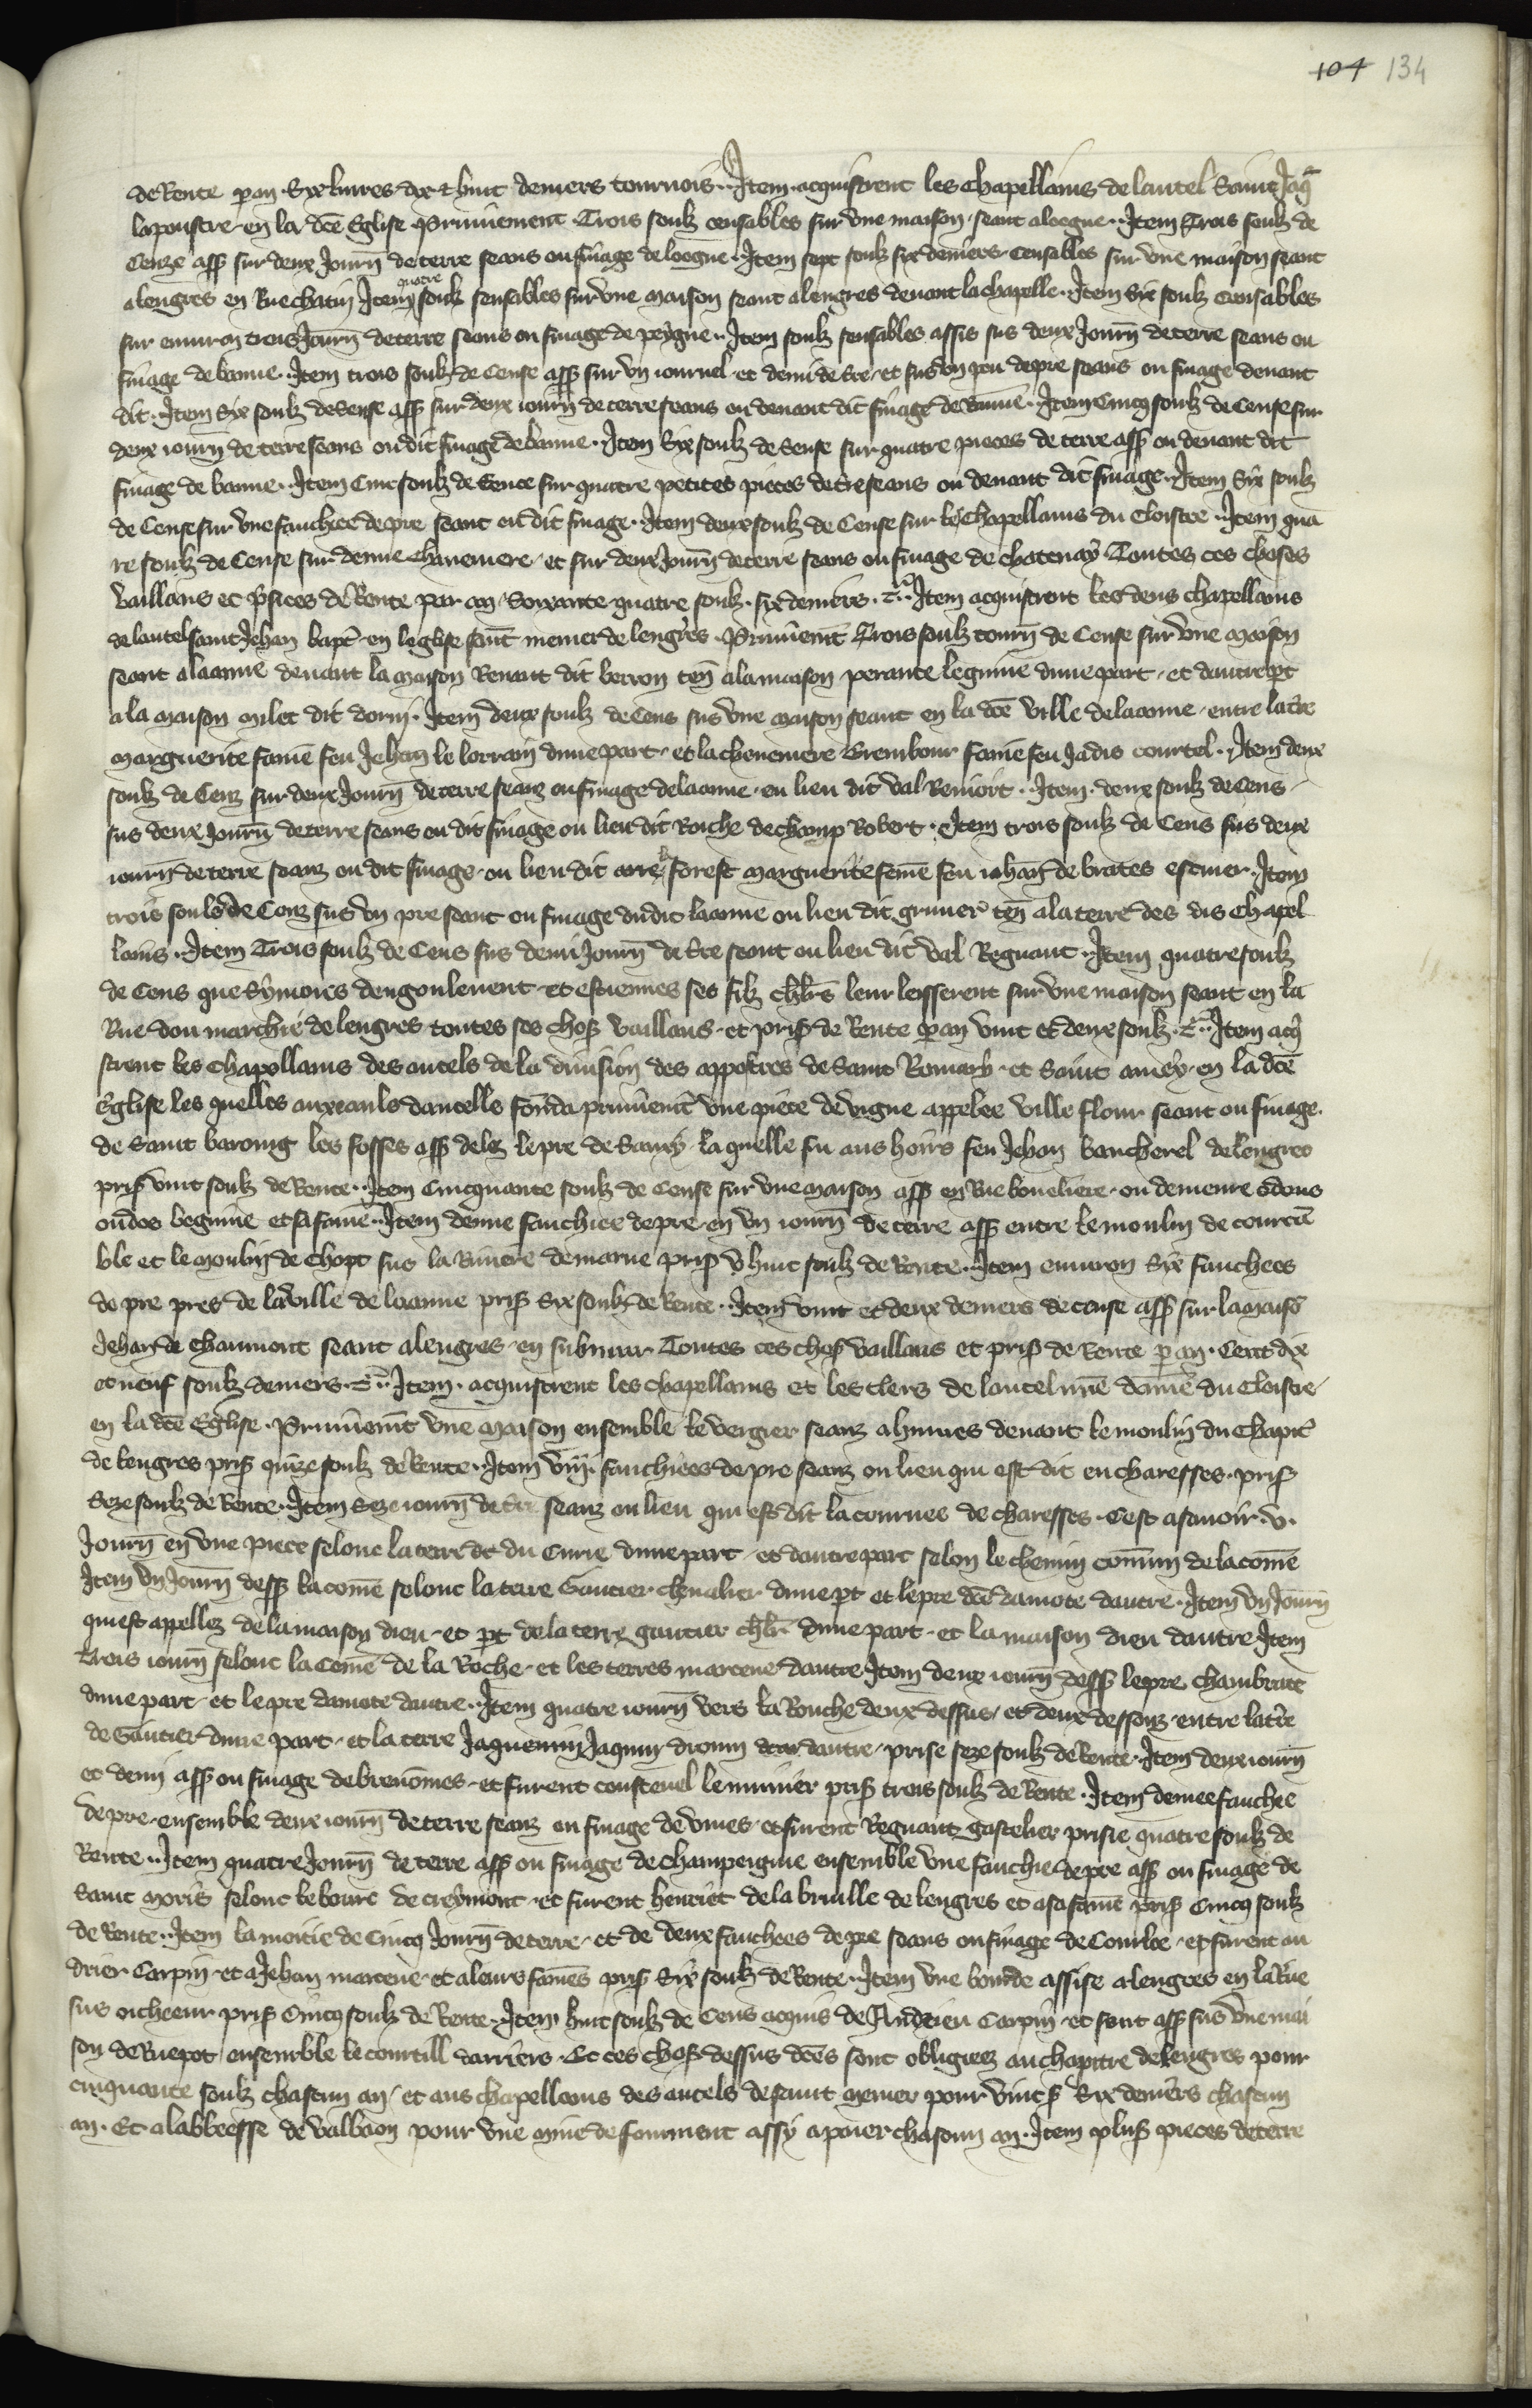 104 134
de Rente p an. Syx livres dix & huit deniers tournois. Item acquistrent les chapellains de lautel Saint Jaq̄
lapoustre en la dcē Eglise Primiement Trois soulz censables sur vne maison seant aloogne. Item Trois soulz de
Cenze assˢ sur deux Journˉ de terre seans ou finage de loogne. Item sept soulz six deniers censables sur vne maison seant
alengres en Rue chatin Item quatre soulz sensables sur vne maison seant alengres devant lachapelle. Item Six soulz Censables
sur environ trois Journˉ de terre seans ou finage de peigne. Item soulz sensables assis sus deux Journˉ de terre seans ou
finage de banne. Item trois soulz de Cense assˢ sur vn iournel et demi de tˉre et sus vn pou de pre seans ou finage devant
dit. Item Six soulz de Sense assˢ sur deux iournˉ de terre seans ou devant dit finage de banne. Item Cincq soulz de Cense sur
deux iournˉ de terre seans ou dit finage de banne. Item Six soulz de Sense sur quatre pieces de terre assˢ ou devant dit
finage de banne. Item Cinc soulz de Sence sur quatre petites pieces de tˉre seans ou devant dit finage. Item Six soulz
de Cense sur vne fauchiee de pre seant ou dit finage. Item deux soulz de Cense sur les Chapellains du Cloistre. Item qua
tre soulz de Cense sur demie Chanemere et sur deux Journˉ de terre seans ou finage de chatenay Toutes ces choses
vaillans et prisees de Rente par an Soixante quatre soulz six deniers. tˢ. Item acquistrent les dens chapellains
de lautel saint Jehan bapt̄ en leglise saint memer de lengres. Primiemt̄ Trois soulz tournˉ de Cense sur vne maison
seant alaanne devant la maison Renaut dit berron ten̄ alamaison perante leguime dune part et dautre pt
ala maison milet dit dorin. Item deux soulz de Cens sus vne maison seant en la dcē ville delaanne entre latˉre
marguerite famē feu Jehan le lorrain dune part et lachenemere Brembour famē feu Jadis courtel. Item deux
soulz de Cenz sur deux Journˉ de terre seanz ou finage delaanne en lieu dit val Remiort. Item deux soulz de Cens
sus deux Journˉ de terre seans ou dit finage ou lieu dit Roiche de champ Robert. Item trois soulz de Cens sus deux
iournˉ de terre seanz ou dit finage ou lieu dit arre la forest marguerite femē feu iehan de brates escuier. Item
trois souls de Cenz sus vn pre seant ou finage dudit laanne ou lieu dit gruner ten̄ ala terre des dis Chapel
lains. Item Trois soulz de Cens sus demi Journˉ de tˉre seant ou lieu dit val Regnaut. Item quatre soulz
de Cens que Symoies dengoulevent et estiennes ses filz chlrˉs leur lesserent sur vne maison seant en la
Rue dou marchie de lengres toutes ses chosˢ vaillans et prisˢ de Rente p an vint et deux soulz. tˢ. Item acq̄
strent les Chapellains des autels de la division des appostres de Saint Romary et Saint amey en la dcē
Eglise les quelles anxeauls dancelle fonda primiemt̄ vne piece de vigne appelee ville flour seant ou finage
de Saint baroing les fosses assˢ delez lepre de Sancy laquelle fu aus hoirs feu Jehan bancherel delengres
prisˢ vint soulz de Rente. Item Cincquante soulz de Cense sur vne maison assˢ en Rue boueliere ou demeure odons
oudes beguine et sa famē. Item demie fauchiee de pre en vn iournˉ de terre assˢ entre le moulin de courcē
ble et le moulin de Chopt sus la Riviere de marne prisˢ vhuit soulz de Rente. Item environ Six fauchees
de pre pres de laville de laanne prisˢ Six soulz de Rente. Item vint et deux deniers de cense assˢ sur lamaisō
Jehan de Chaumont seant alengres en submur Toutes ces chosˢ vaillans et prisˢ de Rente p an. Cent dix
et neuf soulz deniers. tˢ. Item acquistrent les chapellains et les clers de lautel nrē dame du Cloistre
en la dcē Eglise. Primiemt̄ vne maison ensemble le vergier seanz a humes devant le moulin du Chapitˉ
de lengres prisˢ quize soulz de Rente. Item viij fauchiees de pre seanz ou lieu qui est dit en charesses prisˢ
Seze soulz de Rente. Item Seze iournˉ de tˉre seanz ou lieu qui est dit la cournee de charesses. Cest asavoir v.
Journˉ en vne piece selonc laterre dt du Curie dune part et dautre part selon le chemin comun de lacomē
Item vn Journˉ dessˢ la comē selonc la terre Gautier chevalier dune pt et lepre dcē damote dautre. Item vn Journˉ
qui est appellez de lamaison dieu et pt dela terre gautier chlr̄ dune part et la maison dieu dautre Item
Trois iournˉ selonc la Comē de la Roche et les terres marcene dautre Item deux iournˉ dessˢ lepre chambrate
dune part et lepre damote dautre. Item quatre iournˉ vers la Rouche deux dessus et deux dessouz entre latˉre
de Gautier dune part et la terre Jaquemin Jaquin dioum dautre prise seze soulz de Rente. Item deux iournˉ
et demi assˢ ou finage debrenomes et furent constenel lemunier prisˢ trois soulz de Rente. Item demee fauchee
de pre ensemble deux iournˉ de terre seanz ou finage de vmes et furent Regnaut gastelier prisie quatre soulz de
Rente. Item quatre Journˉ de terre assˢ ou finage de champeigine ensemble vne fauchie de pre assˢ ou finage de
Saint moris selonc le boure de creymont et furent henriet de la bruille de lengres et a sa famē prisˢ Cincq soulz
de Rente. Item la moitie de Cincq Journˉ de terre et de deux fauchees de pre seans ou finage de Courlee et furent an
drier Carpin et a Jehan marcene et a leurs fames prisˢ Six soulz de Rente. Item vne bourde assise alengres en la Rue
sus oicheeur prisˢ Cincq soulz de Rente. Item huit soulz de Cens acquis de Andrieu Carpin et sont assˢ sus vne mai
son de Ruepot ensemble le courtill darriers. Et ces chosˢ dessus dcēs sont obligiees au chapitre delengres pour
cinquante soulz chascun an et aus chapellains des autels de saint memer pour vintˢ Six deniers chascun
an. Et alabbeesse de valbaon pour vne mine de froment assy apaier chascun an. Item plusˢ pieces de terre